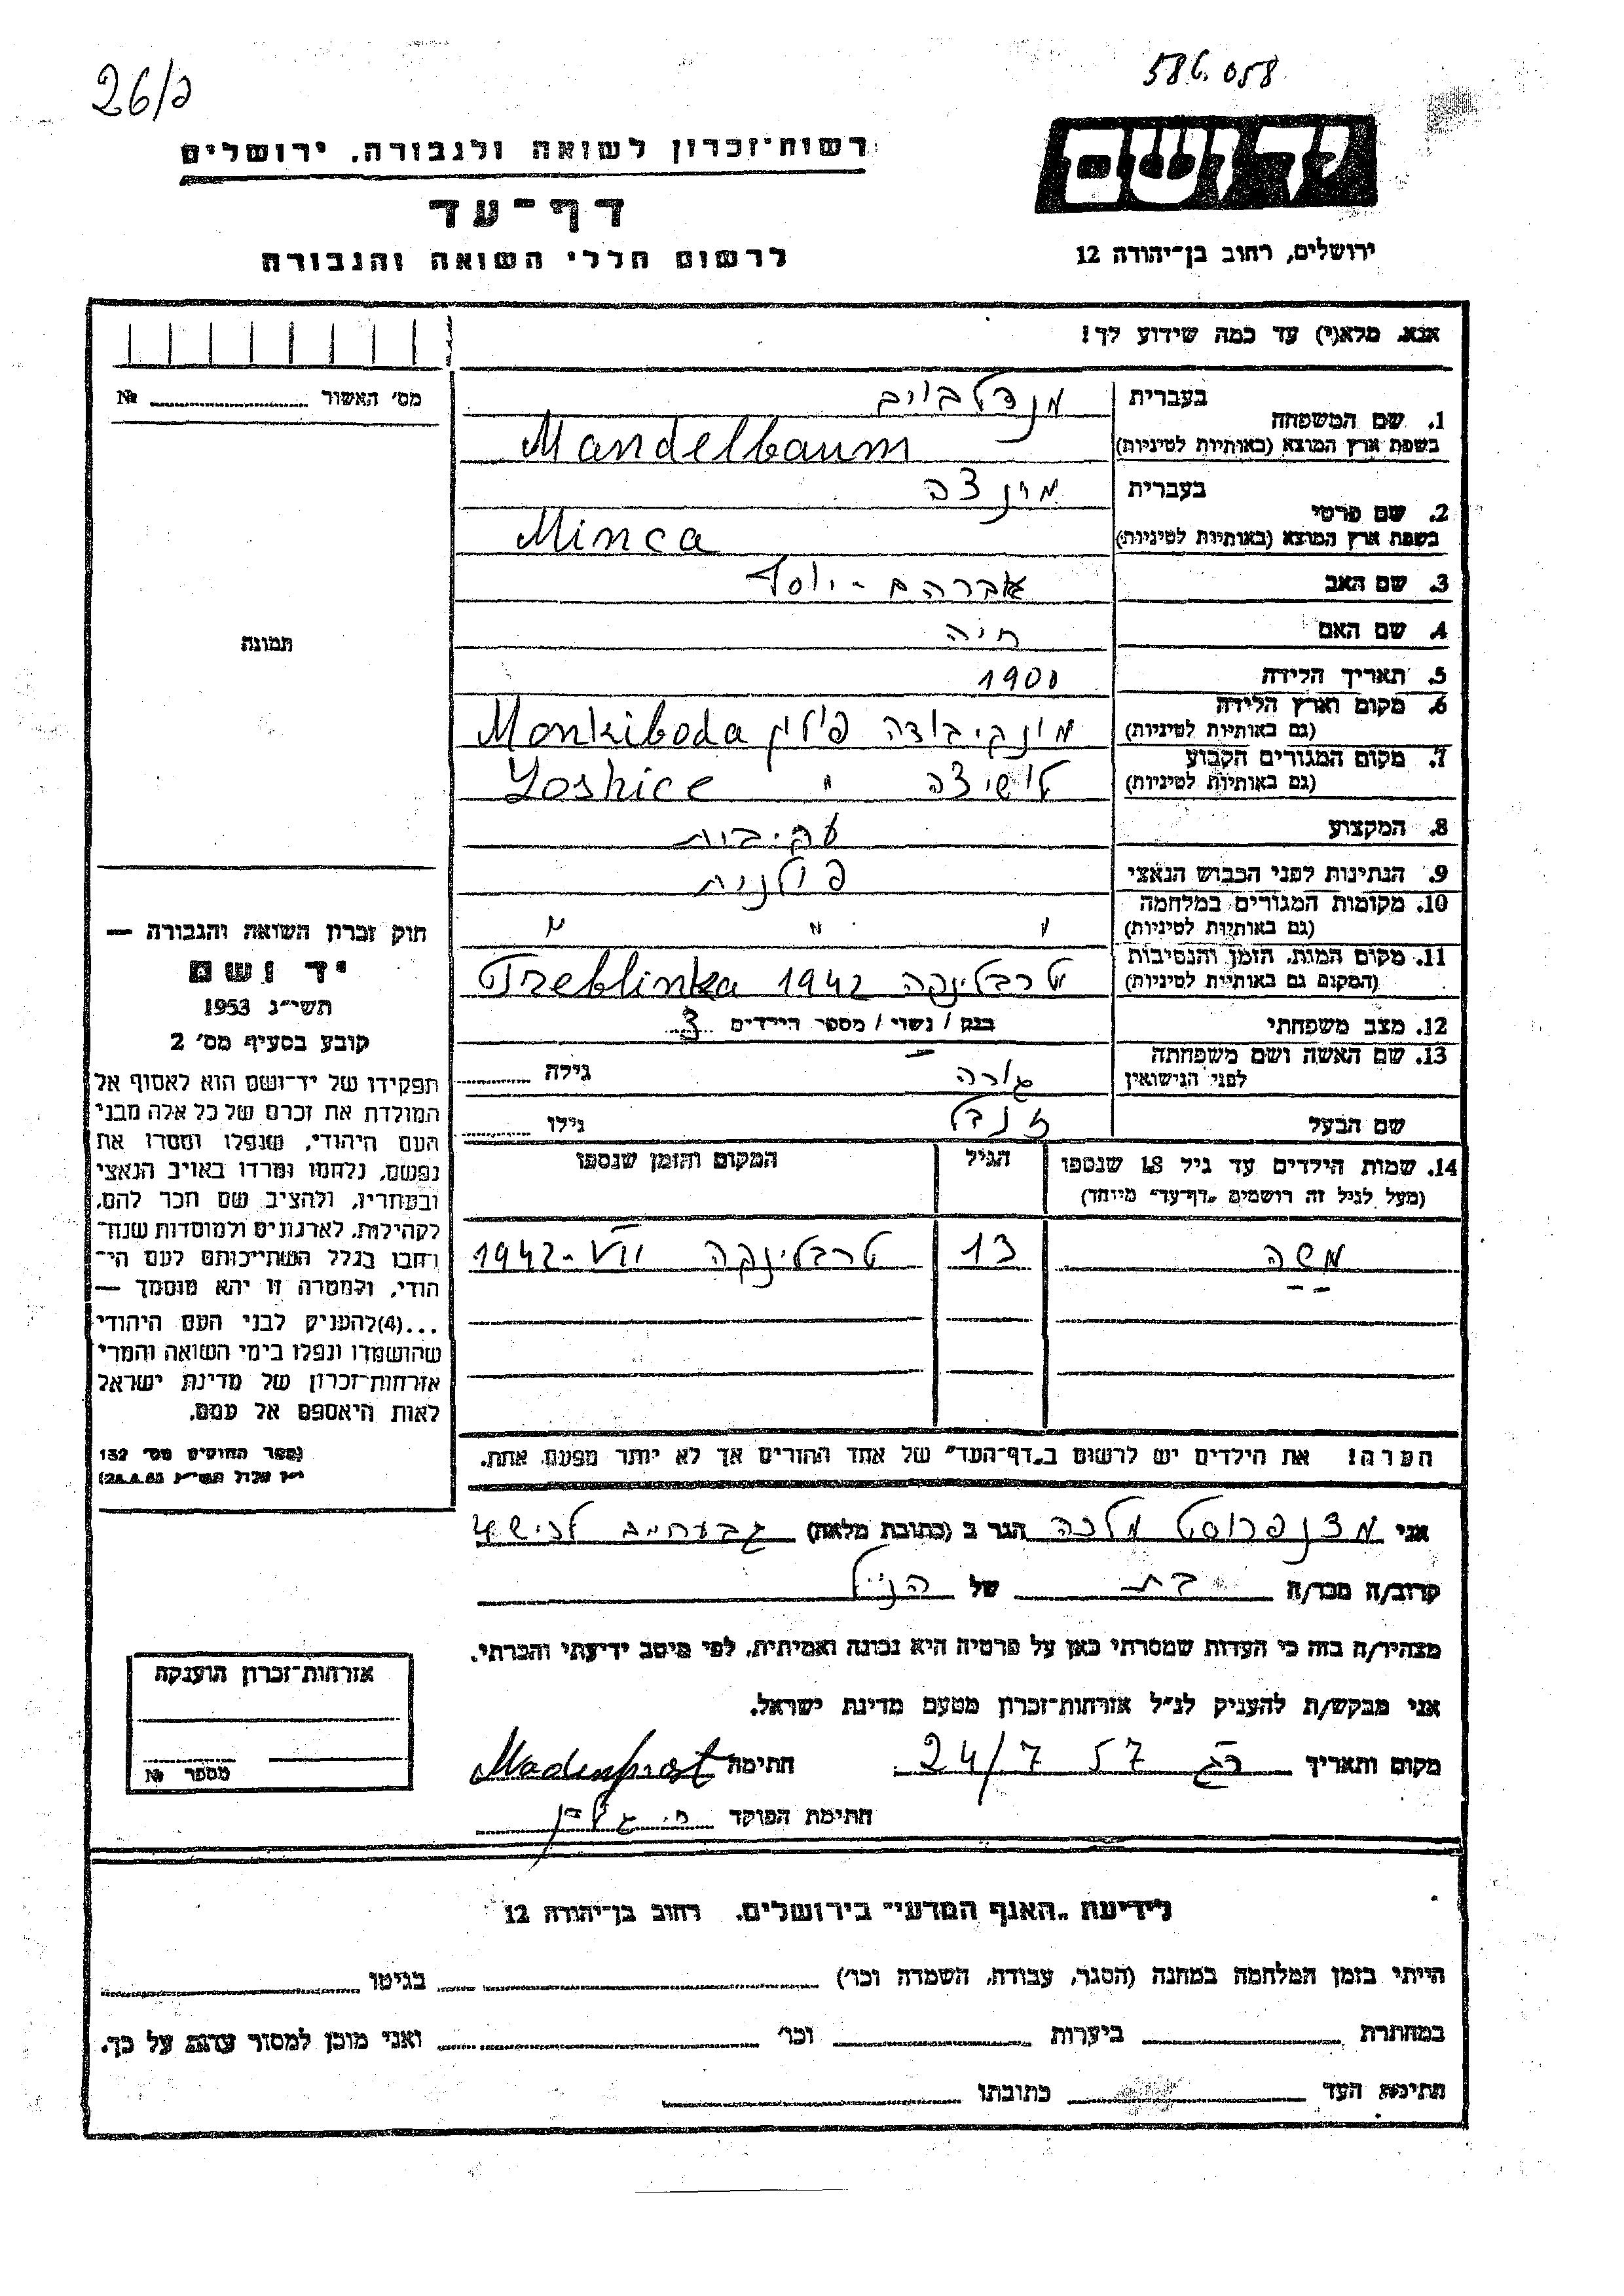 26/ג
586.058
רשות־זכרון לשואה ולגבורה, ירושלים
יד ושם
דף־עד
לרשום חללי השואה והגבורה
ירושלים, רחוב בן־יהודה 12
אנא, מלא(י) עד כמה שידוע לך!
מס׳ האשור № 
תמונה
1. שם המשפחה
בעברית מנדלבוים
בשפת ארץ המוצא (באותיות לטיניות) Mandelbaum
2. שם פרטי
בעברית מינצה
בשפת ארץ המוצא (באותיות לטיניות) Minca
3. שם האב אברהם - יוסף
4. שם האם חיה
5. תאריך הלידה 1900
6. מקום וארץ הלידה (גם באותיות לטיניות) מונקיבודה פולין Monkiboda
7. מקום המגורים הקבוע (גם באותיות לטיניות) לושיצה " Loshice
8. המקצוע עקיבות
9. הנתינות לפני הכבוש הנאצי פולנית
10. מקומות המגורים במלחמה (גם באותיות לטיניות) " " "
11. מקום המות, הזמן והנסיבות (המקום גם באותיות לטיניות) טרבלינקה 1942 Treblinka
12. מצב משפחתי רווק / נשוי / מספר הילדים 3
13. שם האשה ושם משפחתה לפני הנישואין גורה גילה
שם הבעל זנדל גילו
14. שמות הילדים עד גיל 18 שנספו
(מעל לגיל זה רושמים „דף־עד״ מיוחד)
הגיל
המקום והזמן שנספו
משה 13 טרבלינקה 1942-VII
הערה! את הילדים יש לרשום ב„דף־העד״ של אחד ההורים אך לא יותר מפעם אחת.
חוק זכרון השואה והגבורה —
יד ושם
תשי״ג 1953
קובע בסעיף מס׳ 2
תפקידו של יד־ושם הוא לאסוף אל
המולדת את זכרם של כל אלה מבני
העם היהודי, שנפלו ומסרו את
נפשם, נלחמו ומרדו באויב הנאצי
ובעוזריו, ולהציב שם וזכר להם,
לקהילות, לארגונים ולמוסדות שנח־
רבו בגלל השתייכותם לעם הי־
הודי, ולמטרה זו יהא מוסמך —
...(4) להעניק לבני העם היהודי
שהושמדו ונפלו בימי השואה והמרי
אזרחות־זכרון של מדינת ישראל
לאות היאספם אל עמם.
(ספר החוקים מס׳ 132
אני מדנפרוסט מלכה הגר ב (כתובת מלאה) גבעת חיים
קרוב/ה מכר/ה בת של הנ״ל
מצהיר/ה בזה כי העדות שמסרתי כאן על פרטיה היא נכונה ואמיתית, לפי מיטב ידיעתי והכרתי.
אני מבקש/ת להעניק לנ״ל אזרחות־זכרון מטעם מדינת ישראל.
מקום ותאריך 24/7 57 חתימה Madenfrost
חתימת הפוקד
אזרחות־זכרון הוענקה
מספר №
לידיעת „האגף המדעי״ בירושלים, רחוב בן־יהודה 12
הייתי בזמן המלחמה במחנה (הסגר, עבודה, השמדה וכו׳) בגיטו
במחתרת ביערות וכו׳ ואני מוכן למסור עדות על כך.
חתימת העד כתובתו